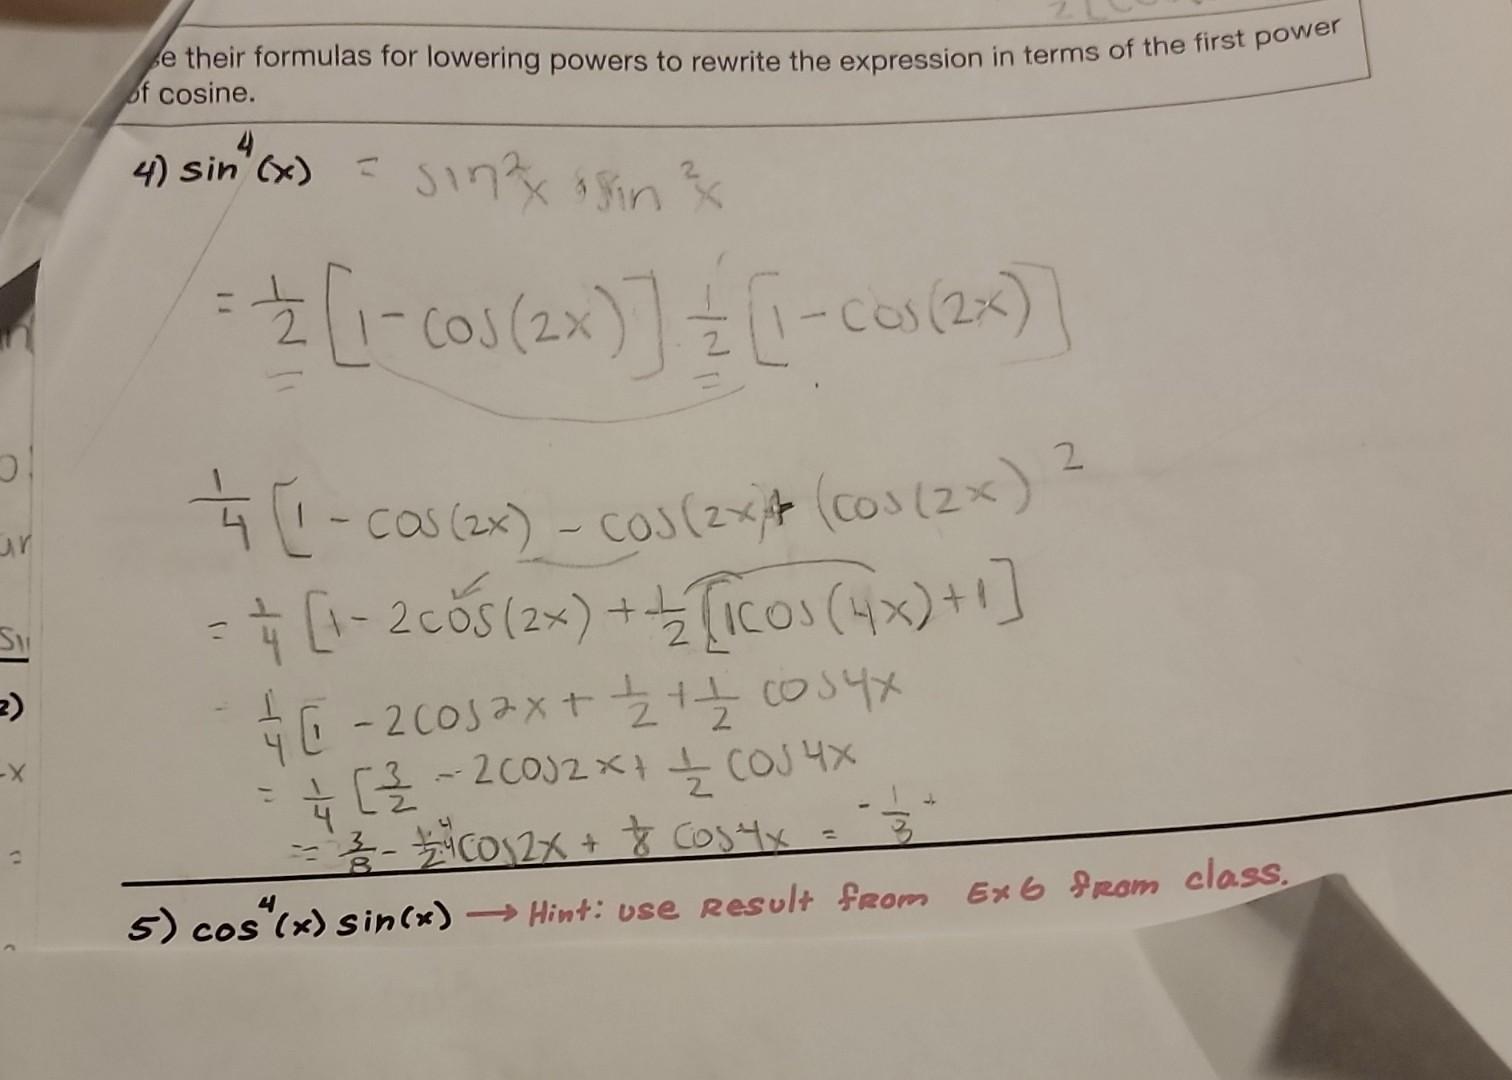 e their formulas for lowering powers to rewrite the expression in terms of the first power
of cosine.
4) sin⁴(x) = sin²x · sin²x
= 1/2 [1 - cos(2x)] 1/2 [1 - cos(2x)]
1/4 [1 - cos(2x) - cos(2x) + (cos(2x)²
= 1/4 [1 - 2cos(2x) + 1/2 [1cos(4x) + 1]
- 1/4 [1 - 2cos2x + 1/2 + 1/2 cos4x
= 1/4 [3/2 - 2cos2x + 1/2 cos4x
= 3/8 - cos2x + 1/8 cos4x = - 1/3 +
5) cos⁴(x) sin(x) → Hint: use Result from Ex 6 from class.
2)
-x
=